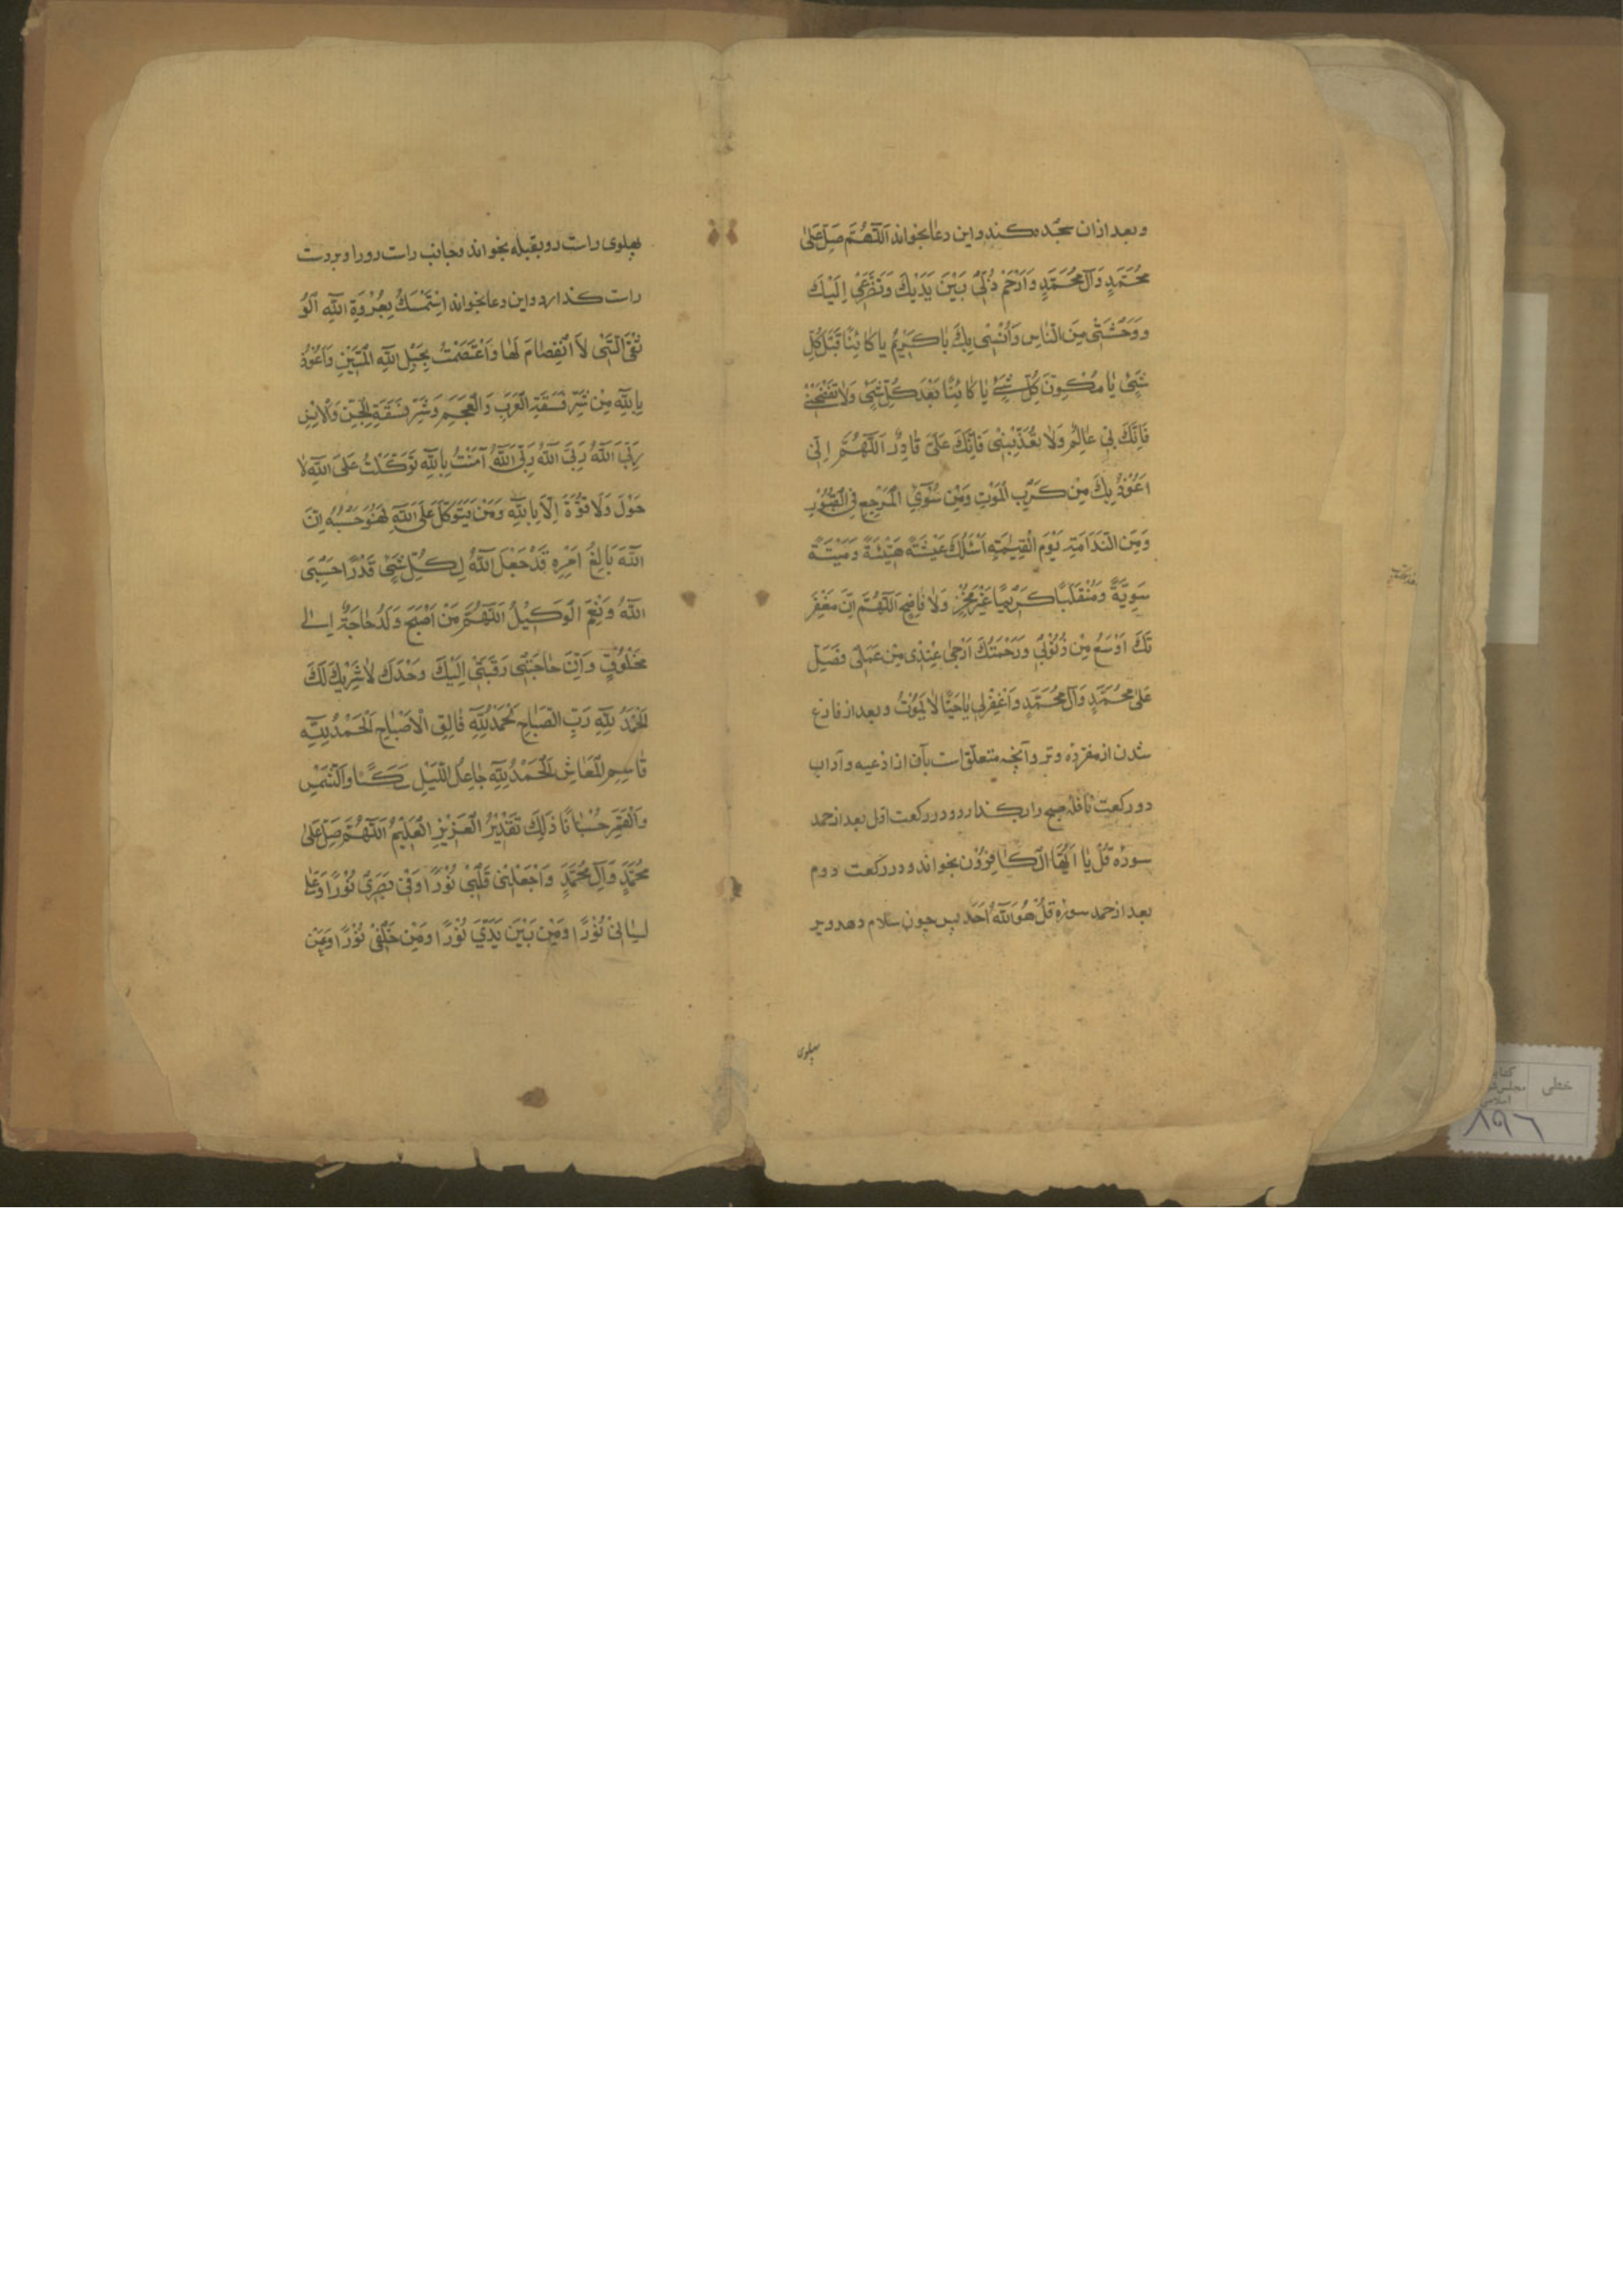 و بعد ازان سجده بکند و این دعا بخواند اَللّٰهُمَّ صَلِّ عَلیٰ
مُحَمَّدٍ وَآلِ مُحَمَّدٍ وَارْحَمْ ذُلّی بَیْنَ یَدَیْكَ وَتَضَرُّعی اِلَیْكَ
وَوَحْشَتی مِنَ النّاسِ وَاُنْسی بِكَ یا کَریمُ یا کائِنًا قَبْلَ کُلِّ
شَیْءٍ یا مُکَوِّنَ کُلِّ شَیْءٍ یا کائِنًا بَعْدَ کُلِّ شَیْءٍ وَلا تَفْضَحْنی
فَاِنَّكَ بی عالِمٌ وَلا تُعَذِّبْنی فَاِنَّكَ عَلَیَّ قادِرٌ اَللّٰهُمَّ اِنّی
اَعُوذُ بِكَ مِنْ کَرْبِ الْمَوْتِ وَمِنْ سُوءِ الْمَرْجِعِ فِی الْقُبُورِ
وَمِنَ النَّدامَةِ یَوْمَ الْقِیٰمَةِ اَسْئَلُكَ عَیْشَةً هَنیئَةً وَمَیْتَةً
سَوِیَّةً وَمُنْقَلَبًا کَریمًا غَیْرَ مُخْزٍ وَلا فاضِحٍ اَللّٰهُمَّ اِنَّ مَغْفِرَ
تَكَ اَوْسَعُ مِنْ ذُنُوبی وَرَحْمَتُكَ اَرْجیٰ عِنْدی مِنْ عَمَلی فَصَلِّ
عَلیٰ مُحَمَّدٍ وَآلِ مُحَمَّدٍ وَاغْفِرْلی یا حَیًّا لا یَمُوتُ و بعد از فارغ
شدن از مفرده وتر و آنچه متعلق است بآن از ادعیه و آداب
دو رکعت نافله صبح را بکذارد و در رکعت اول بعد از حمد
سوره قُلْ یا اَیُّهَا الْکافِرُونَ بخواند و در رکعت دوم
بعد از حمد سوره قُلْ هُوَ اللّٰهُ اَحَد پس چون سلام دهد و بر
پهلوی
پهلوی راست رو بقبله بخواند و جانب راست رو را و بر دست
راست کذارد و این دعا بخواند اِسْتَمْسَكْتُ بِعُرْوَةِ اللّٰهِ الْوُ
ثْقَی الَّتی لاَ انْفِصامَ لَها وَاعْتَصَمْتُ بِحَبْلِ اللّٰهِ الْمَتینِ وَاَعُوذُ
بِاللّٰهِ مِنْ شَرِّ فَسَقَةِ الْعَرَبِ وَالْعَجَمِ وَشَرِّ فَسَقَةِ الْجِنِّ وَالْاِنْسِ
رَبِّیَ اللّٰهُ رَبِّیَ اللّٰهُ رَبِّیَ اللّٰهُ آمَنْتُ بِاللّٰهِ تَوَکَّلْتُ عَلَی اللّٰهِ لا
حَوْلَ وَلا قُوَّةَ اِلّا بِاللّٰهِ وَمَنْ یَتَوَکَّلْ عَلَی اللّٰهِ فَهُوَ حَسْبُهُ اِنَّ
اللّٰهَ بالِغُ اَمْرِهِ قَدْ جَعَلَ اللّٰهُ لِکُلِّ شَیْءٍ قَدْرًا حَسْبِیَ
اللّٰهُ وَنِعْمَ الْوَکیلُ اَللّٰهُمَّ مَنْ اَصْبَحَ وَلَهُ حاجَةٌ اِلیٰ
مَخْلُوقٍ وَاِنَّ حاجَتی وَرَغْبَتی اِلَیْكَ وَحْدَكَ لا شَریكَ لَكَ
اَلْحَمْدُ لِلّٰهِ رَبِّ الصَّباحِ اَلْحَمْدُ لِلّٰهِ فالِقِ الْاِصْباحِ اَلْحَمْدُ لِلّٰهِ
قاسِمِ الْمَعاشِ اَلْحَمْدُ لِلّٰهِ جاعِلِ اللَّیْلِ سَکَنًا وَالشَّمْسِ
وَالْقَمَرِ حُسْبانًا ذٰلِكَ تَقْدیرُ الْعَزیزِ الْعَلیمِ اَللّٰهُمَّ صَلِّ عَلیٰ
مُحَمَّدٍ وَآلِ مُحَمَّدٍ وَاجْعَلْ فی قَلْبی نُورًا وَفی بَصَری نُورًا وَعَلیٰ
لِسانی نُورًا وَمِنْ بَیْنِ یَدَیَّ نُورًا وَمِنْ خَلْفی نُورًا وَعَنْ
خطی
۸۹۶